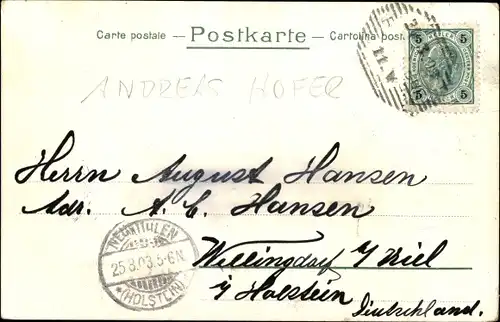 Carte postale — Postkarte — Cartolina post.
5 HELLER 5
5 5
ANDREAS HOFER
Herrn August Hansen
Adr. A. C. Hansen
NEUMÜHLEN
25.8.03.5-6N.
*(HOLSTEIN)
Wellingdorf b/ Kiel
i/ Holstein
Deutschland.